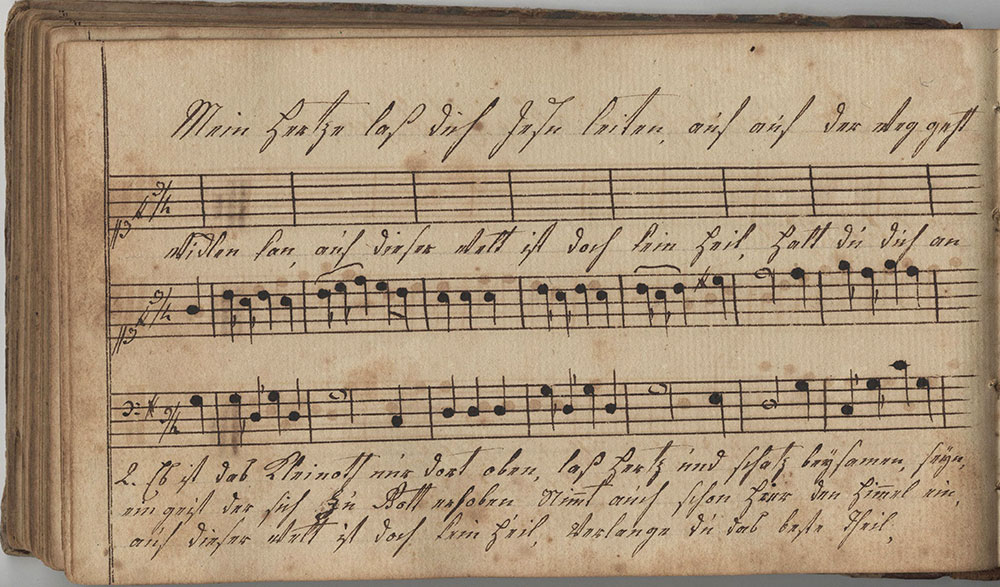 Mein Hertze laß dich Jesu leiten, auch auf der weg geht
widlen kan, auf dieser welt ist doch kein Heil, halt du dich an
2. Es ist das Kleinoth nur dort oben, laß hertz und schatz beysamen, seyn,
ein geist der sich zu Gott erhoben Nimt auch schon hier den himel ein,
auf dieser welt ist doch kein heil, verlange du das beste Theil,